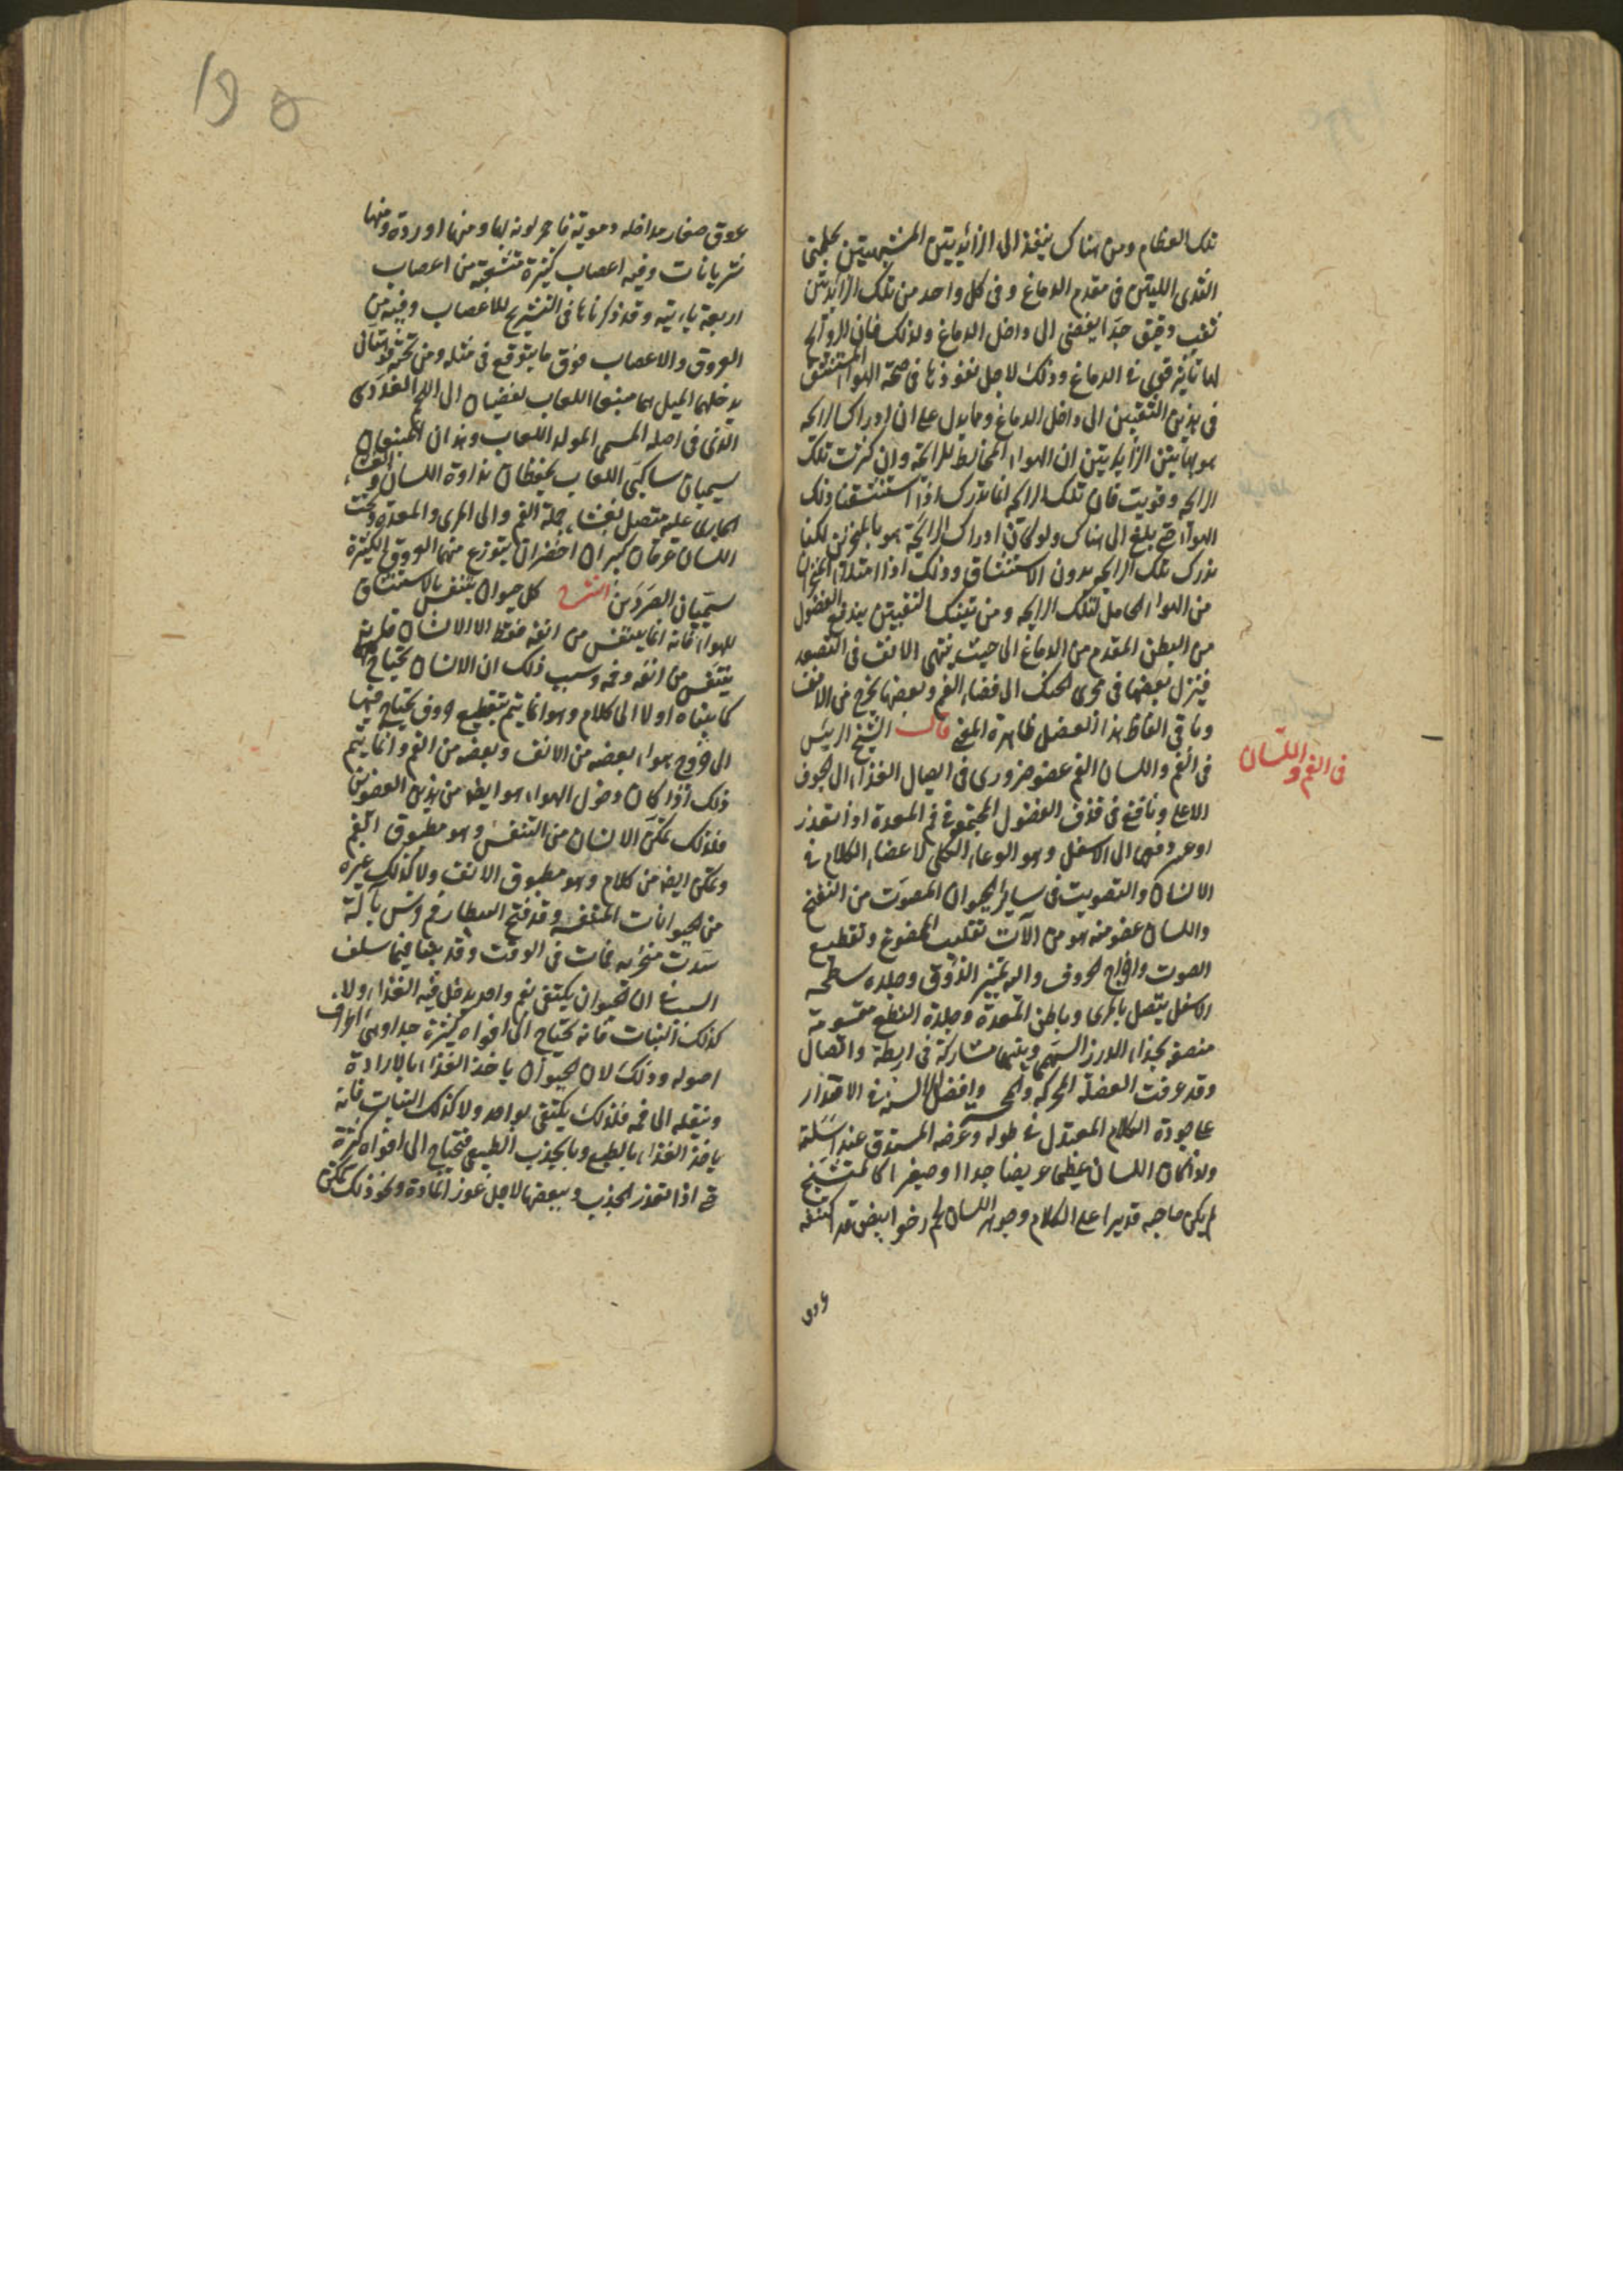 تلك العظام ومن هناك ينفذ الى الزائديتين المشبهتين بحلمتى
الثدى اللتين فى مقدم الدماغ وفى كل واحد من تلك الزائدتين
ثقب دقيق جدا يفضى الى داخل الدماغ ولذلك فان للروائح
لها تاثير قوى فى الدماغ وذلك لاجل نفوذها فى صحة الهواء المستنشق
فى هذين الثقبين الى داخل الدماغ ومما يدل على ان ادراك الرائحه
هو بهاتين الزائديتين ان الهواء المخالط للرائحة وان كثرت تلك
الرائحه وقويت فان تلك الرائحه انما تدرك اذا استنشقنا ذلك
الهواء حتى بلغ الى هناك ولو كان ادراك الرائحة هو بالمنخرين لكنا
ندرك تلك الرائحه بدون الاستنشاق وذلك اذا امتلا المنخران
من الهواء الحامل لتلك الرايحه ومن تينك الثقبيتين يندفع الفضول
من البطن المقدم من الدماغ الى حيث ينتهى الانف فى التقصير
فينزل بعضها فى مجرى الحنك الى فضاء الفم وبعضها يخرج من الانف
وباقى الفاظ هذا الفصل ظاهرة المعنى قال الشيخ الرئيس
فى الفم واللسان
فى الفم واللسان الفم عضو ضرورى فى ايصال الغذاء الى الجوف
الاعلى ونافع فى قذف الفضول المجتمعة فى فم المعدة اذا تعذر
او عسر دفعها الى الاسفل وهو الوعاء الكلى لاعضاء الكلام فى
الانسان والتصويت فى سائر الحيوان المصوت من النفخ
واللسان عضو منه هو من الآت تقليب الممضوغ وتقطيع
الصوت واخراج الحروف واليه تميز الذوق وجلده سطحه
الاسفل يتصل بالمرى وباطن المعدة وجلدة النطع مقسومة
منصفة بحذاء الدرز السهمى وبينهما مشاركة فى اربطة واتصال
وقد عرفت العضلة المحركه والمحسه وافضل الالسنة فى الاقتدار
على جودة الكلام المعتدل فى طوله وعرضه المستدق عند اسلته
واذا كان اللسان عظيما عريضا جدا او صغيرا كالمتشنج
لم يكن صاحبه قديرا على الكلام وجوهر اللسان لحم رخو ابيض قد اكتنفه
عروق
عروق صغار مداخله دمويه فاحمر لونه بها ومنها اوردة ومنها
شريانات وفيه اعصاب كثيرة متشعبة من اعصاب
اربعة ناتئه وقد ذكرناها فى التشريح للاعصاب وفيه من
العروق والاعصاب فوق ما يتوقع فى مثله ومن تحته فوهتان
يدخلهما الميل هما منبعا اللعاب يفضيان الى اللحم الغددى
الذى فى اصله المسمى المولد اللعاب وهذان المنبعان
يسميان ساكبى اللعاب يحفظان نداوة اللسان والغشاء
الجارى عليه متصل بغشاء جملة الفم والى المرى والمعده وتحت
اللسان عرقان كبيران اخضران يتوزع منهما العروق الكثيرة
يسميان الصردين الشرح كل حيوان يتنفس بالاستنشاق
للهواء فانه انما يتنفس من انفه فقط الا الانسان فانه
يتنفس من انفه وفمه وسبب ذلك ان الانسان يحتاج
كما بيناه اولا الى كلام وهو انما يتم بتقطيع حروف يحتاج فيها
الى خروج هواء بعضه من الانف وبعضه من الفم وانما يتم
ذلك اذا كان دخول الهواء هو ايضا من هذين العضوين
فلذلك تمكن الانسان من التنفس وهو مطبوق الفم
وتمكن ايضا من كلام وهو مطبوق الانف ولا كذلك غيره
من الحيوانات المتنفسه وقد فتح البيطار فم فرس بآلة
سدت منخريه فمات فى الوقت وقد بينا فيما سلف
السبب فى ان الحيوان يكتفى بفم واحد يدخل فيه الغذاء ولا
كذلك النبات فانه يحتاج الى افواه كثيرة جدا وهى اطراف
اصوله وذلك لان الحيوان ياخذ الغذاء بالارادة
وينقله الى فمه فلذلك يكتفى بواحد ولا كذلك النبات فانه
ياخذ الغذاء بالطبع وبالجذب الطبيعى فيحتاج الى افواه كثيرة
حتى اذا تعذر الجذب ببعضها لاجل عوز المادة ونحو ذلك تمكن